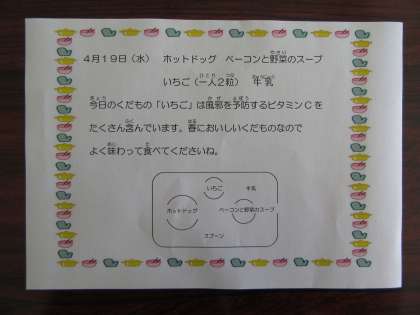 4月19日（水）　ホットドッグ　ベーコンと野菜のスープ
いちご（一人2粒）　牛乳
今日のくだもの「いちご」は風邪を予防するビタミンCを
たくさん含んでいます。春においしいくだものなので
よく味わって食べてくださいね。
いちご　牛乳
ホットドッグ　ベーコンと野菜のスープ
スプーン